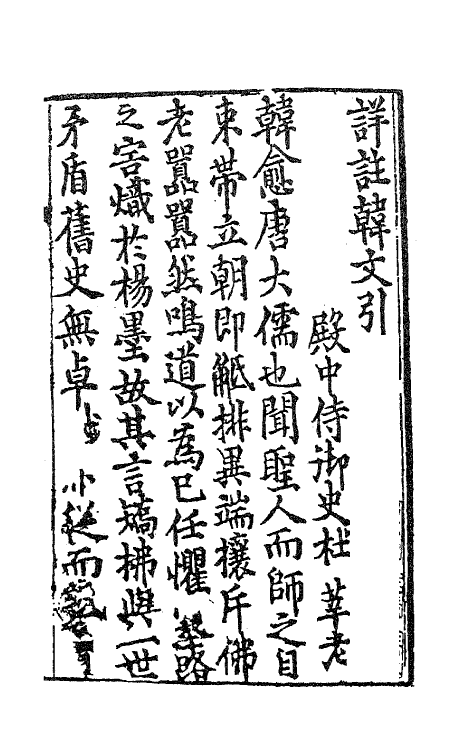 詳註韓文引
殿中侍御史杜莘老
韓愈唐大儒也聞聖人而師之自
束帶立朝即觝排異端攘斥佛
老嚣嚣然鳴道以為已任懼路
之害熾於楊墨故其言矯拂與一世
矛盾舊史無卓從而